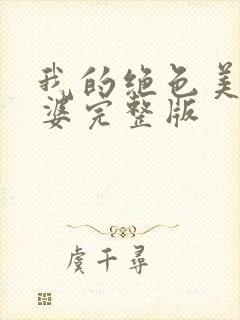 我的绝色美
婆完整版
虞千寻